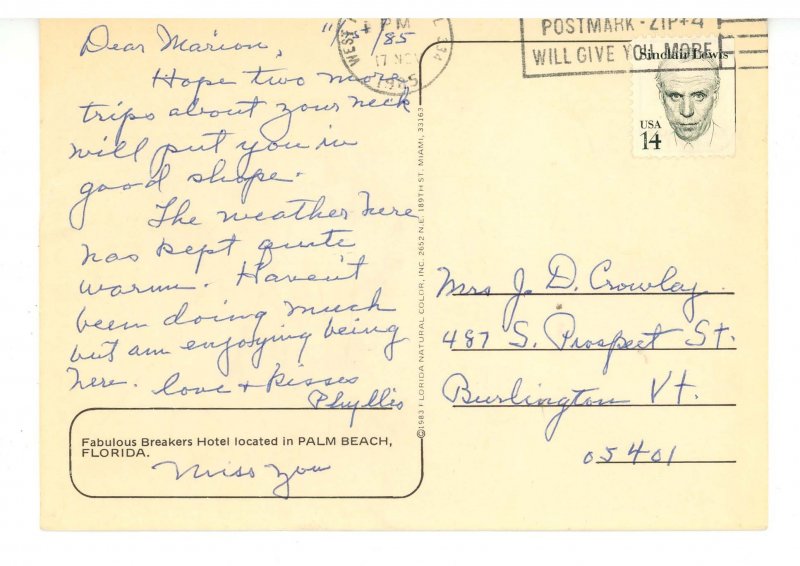 Dear Marion, 11/17/85
Hope two more
trips about your neck
will put you in
good shape.
The weather here
has kept quite
warm. Haven't
been doing much
but am enjoying being
here. Love + kisses
Phyllis
Fabulous Breakers Hotel located in PALM BEACH,
FLORIDA.
Miss you
©1983 FLORIDA NATURAL COLOR, INC. 2652 N.E. 189TH ST. MIAMI, 33163
WEST PM FL 334
17 NOV
1985
POSTMARK - ZIP+4
WILL GIVE YOU MORE
Sinclair Lewis
USA
14
Mrs J. D. Crowley
487 S. Prospect St.
Burlington Vt.
05401